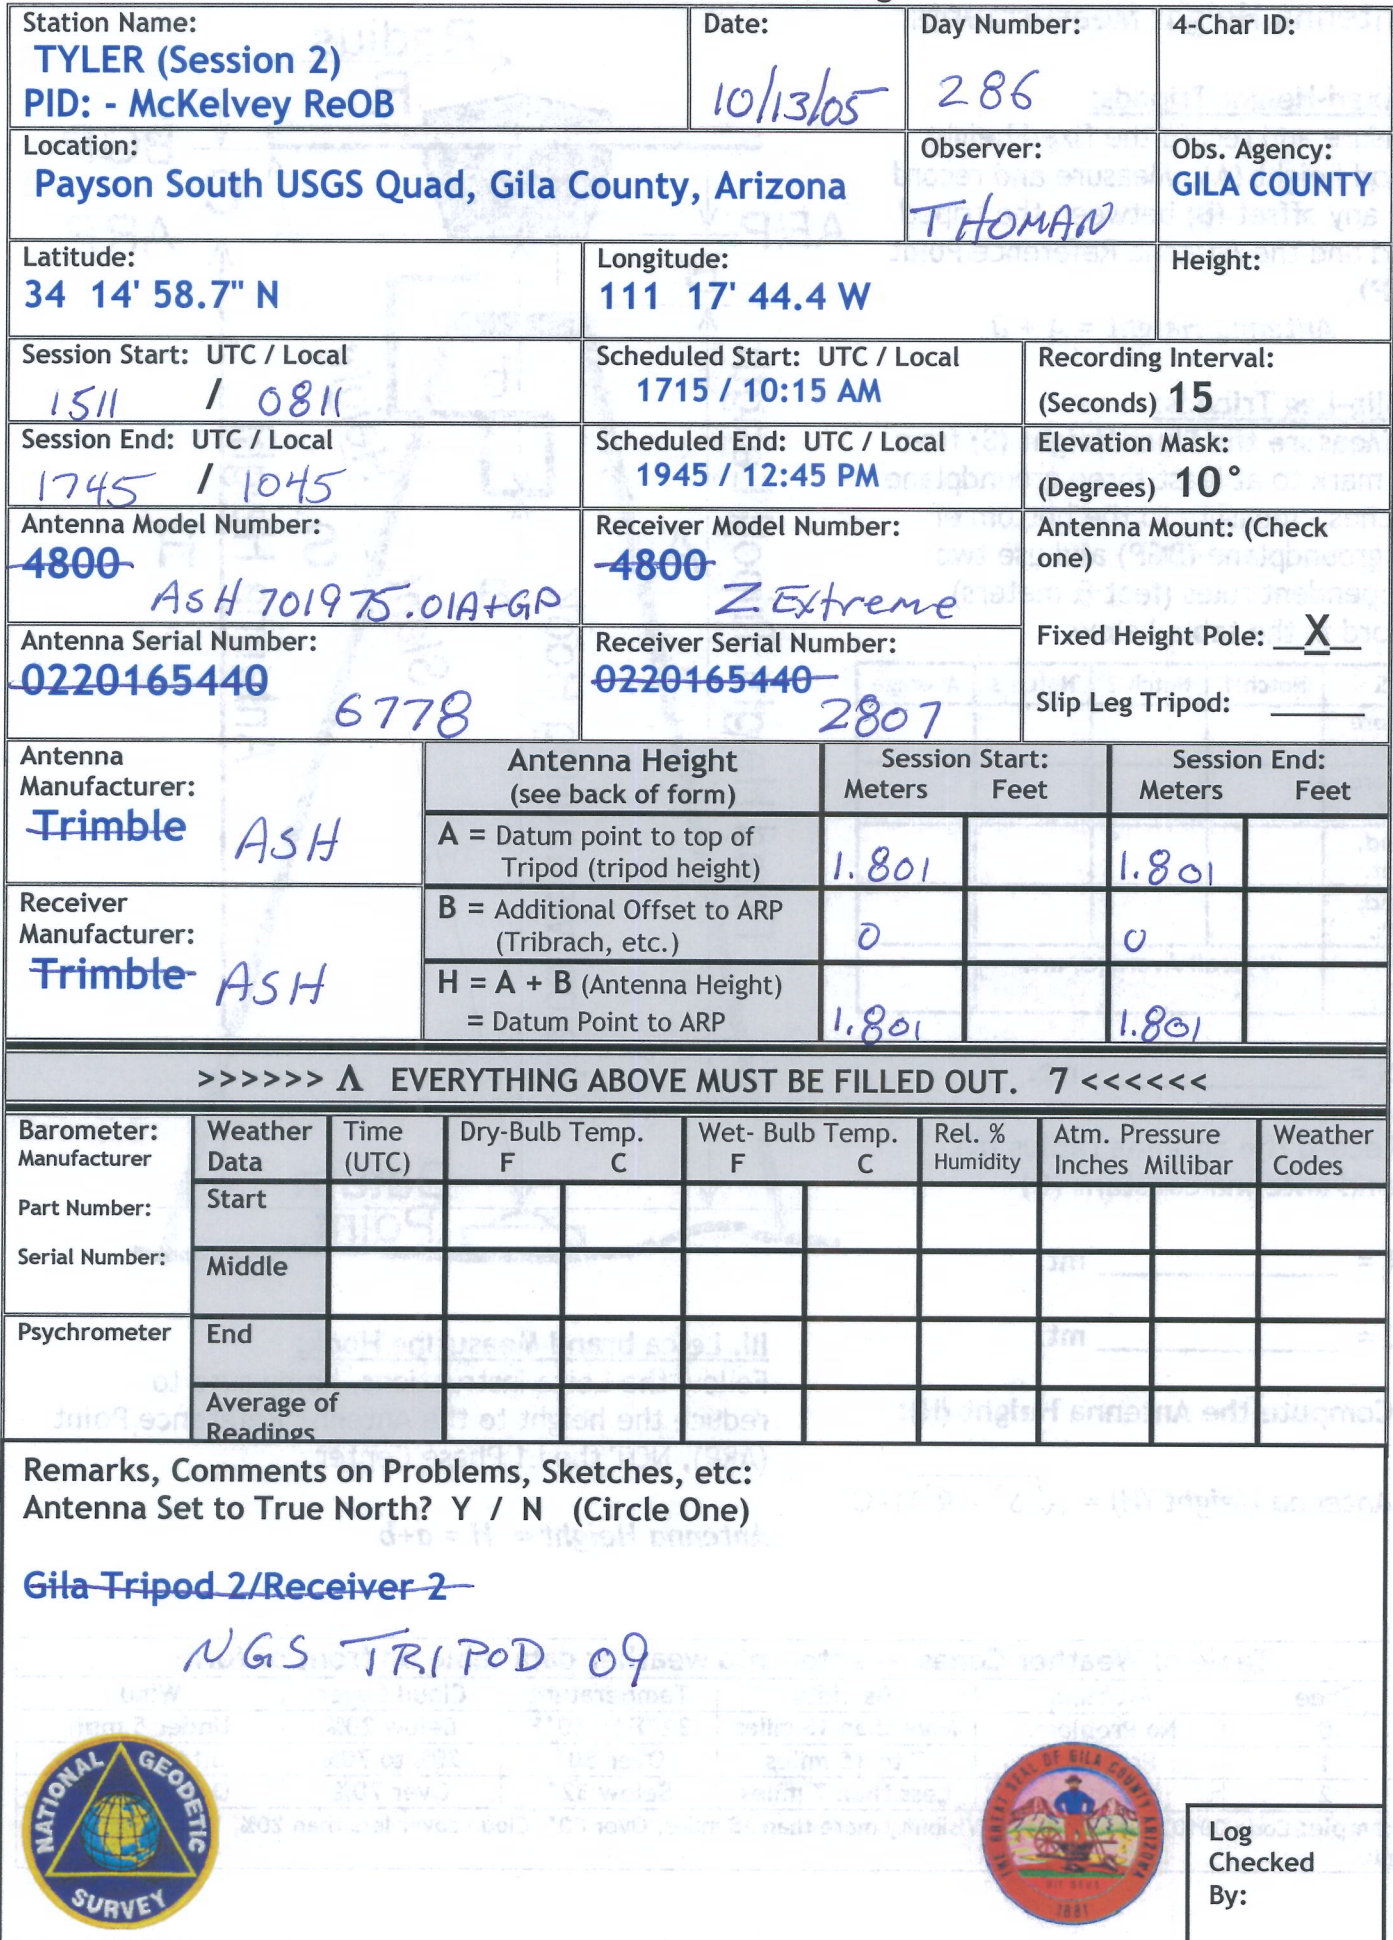 Station Name:
TYLER (Session 2)
PID: - McKelvey ReOB
Date:
10/13/05
Day Number:
286
4-Char ID:
Location:
Payson South USGS Quad, Gila County, Arizona
Observer:
THOMAN
Obs. Agency:
GILA COUNTY
Latitude:
34 14' 58.7" N
Longitude:
111 17' 44.4 W
Height:
Session Start: UTC / Local
1511 / 0811
Scheduled Start: UTC / Local
1715 / 10:15 AM
Recording Interval:
(Seconds) 15
Session End: UTC / Local
1745 / 1045
Scheduled End: UTC / Local
1945 / 12:45 PM
Elevation Mask:
(Degrees) 10°
Antenna Model Number:
4800
ASH 701975.01A+GP
Receiver Model Number:
4800
Z Extreme
Antenna Mount: (Check
one)
Fixed Height Pole: __X__
Slip Leg Tripod: _____
Antenna Serial Number:
0220165440
6778
Receiver Serial Number:
0220165440
2807
Antenna
Manufacturer:
Trimble ASH
Receiver
Manufacturer:
Trimble ASH
Antenna Height
(see back of form)
Session Start:
Meters Feet
Session End:
Meters Feet
A = Datum point to top of
Tripod (tripod height)
1.801 1.801
B = Additional Offset to ARP
(Tribrach, etc.)
0 0
H = A + B (Antenna Height)
= Datum Point to ARP
1.801 1.801
>>>>>> Λ EVERYTHING ABOVE MUST BE FILLED OUT. 7 <<<<<<
Barometer:
Manufacturer
Part Number:
Serial Number:
Psychrometer
Weather
Data
Time
(UTC)
Dry-Bulb Temp.
F C
Wet- Bulb Temp.
F C
Rel. %
Humidity
Atm. Pressure
Inches Millibar
Weather
Codes
Start
Middle
End
Average of
Readings
Remarks, Comments on Problems, Sketches, etc:
Antenna Set to True North? Y / N (Circle One)
Gila Tripod 2/Receiver 2
NGS TRIPOD 09
NATIONAL GEODETIC SURVEY
THE GREAT SEAL OF GILA COUNTY ARIZONA
1881
Log
Checked
By: